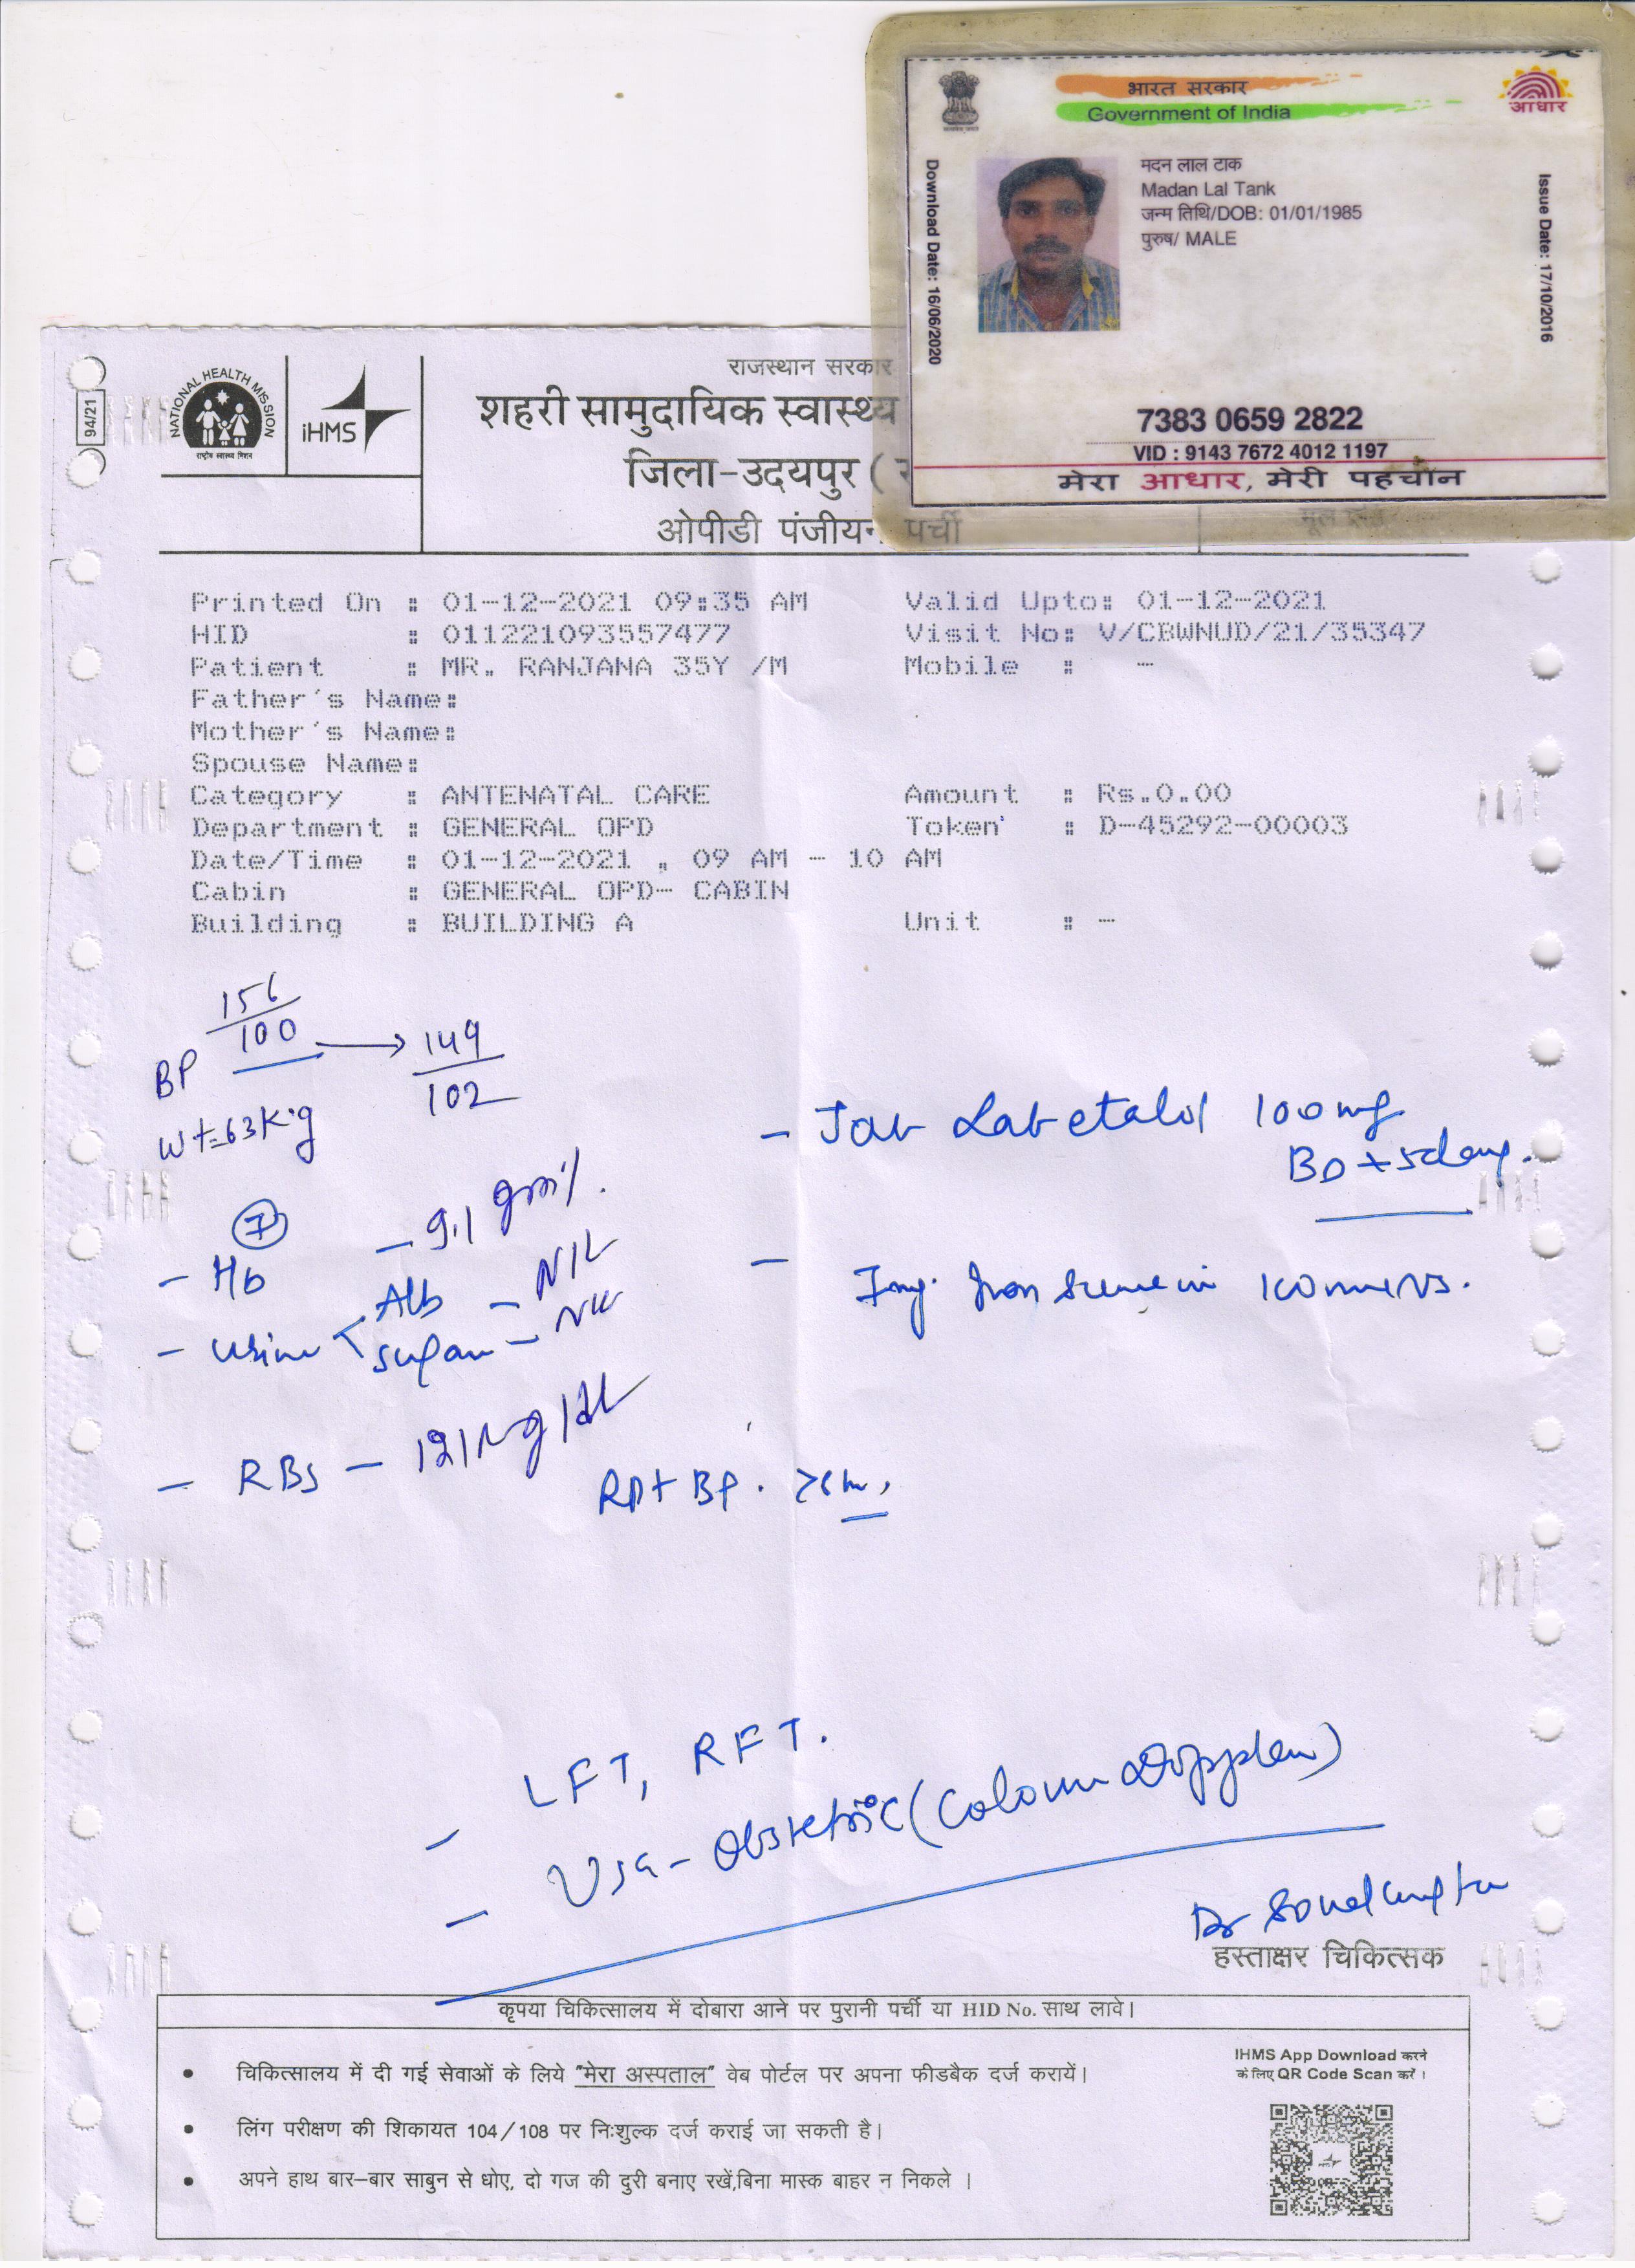 भारत सरकार
Government of India
आधार
मदन लाल टाक
Madan Lal Tank
जन्म तिथि/DOB: 01/01/1985
पुरुष/ MALE
Download Date: 16/06/2020
Issue Date: 17/10/2016
7383 0659 2822
VID : 9143 7672 4012 1197
मेरा आधार, मेरी पहचान
94/21
NATIONAL HEALTH MISSION
राष्ट्रीय स्वास्थ्य मिशन
iHMS
राजस्थान सरकार
शहरी सामुदायिक स्वास्थ्य
जिला-उदयपुर (
ओपीडी पंजीयन पर्ची
Printed On : 01-12-2021 09:35 AM Valid Upto: 01-12-2021
HID : 011221093557477 Visit No: V/CBWNUD/21/35347
Patient : MR. RANJANA 35Y /M Mobile : -
Father's Name:
Mother's Name:
Spouse Name:
Category : ANTENATAL CARE Amount : Rs.0.00
Department : GENERAL OPD Token' : D-45292-00003
Date/Time : 01-12-2021 , 09 AM - 10 AM
Cabin : GENERAL OPD- CABIN
Building : BUILDING A Unit : -
BP 156/100 → 149/102
Wt=63Kg
- Tab Labetalol 100mg
BD x 5days.
- Hb - 9.1 gm%.
- Urine Alb - NIL
Sugar - Nil
- Inj. Iron Sucrose in 100ml NS.
- RBS - 121mg/dL
Rpt BP.
- LFT, RFT.
- USG - Obstetric (Colour Doppler)
Dr Sonal Gupta
हस्ताक्षर चिकित्सक
कृपया चिकित्सालय में दोबारा आने पर पुरानी पर्ची या HID No. साथ लावे।
• चिकित्सालय में दी गई सेवाओं के लिये "मेरा अस्पताल" वेब पोर्टल पर अपना फीडबैक दर्ज करायें।
• लिंग परीक्षण की शिकायत 104/108 पर निःशुल्क दर्ज कराई जा सकती है।
• अपने हाथ बार-बार साबुन से धोए, दो गज की दुरी बनाए रखें,बिना मास्क बाहर न निकले ।
IHMS App Download करने
के लिए QR Code Scan करें ।